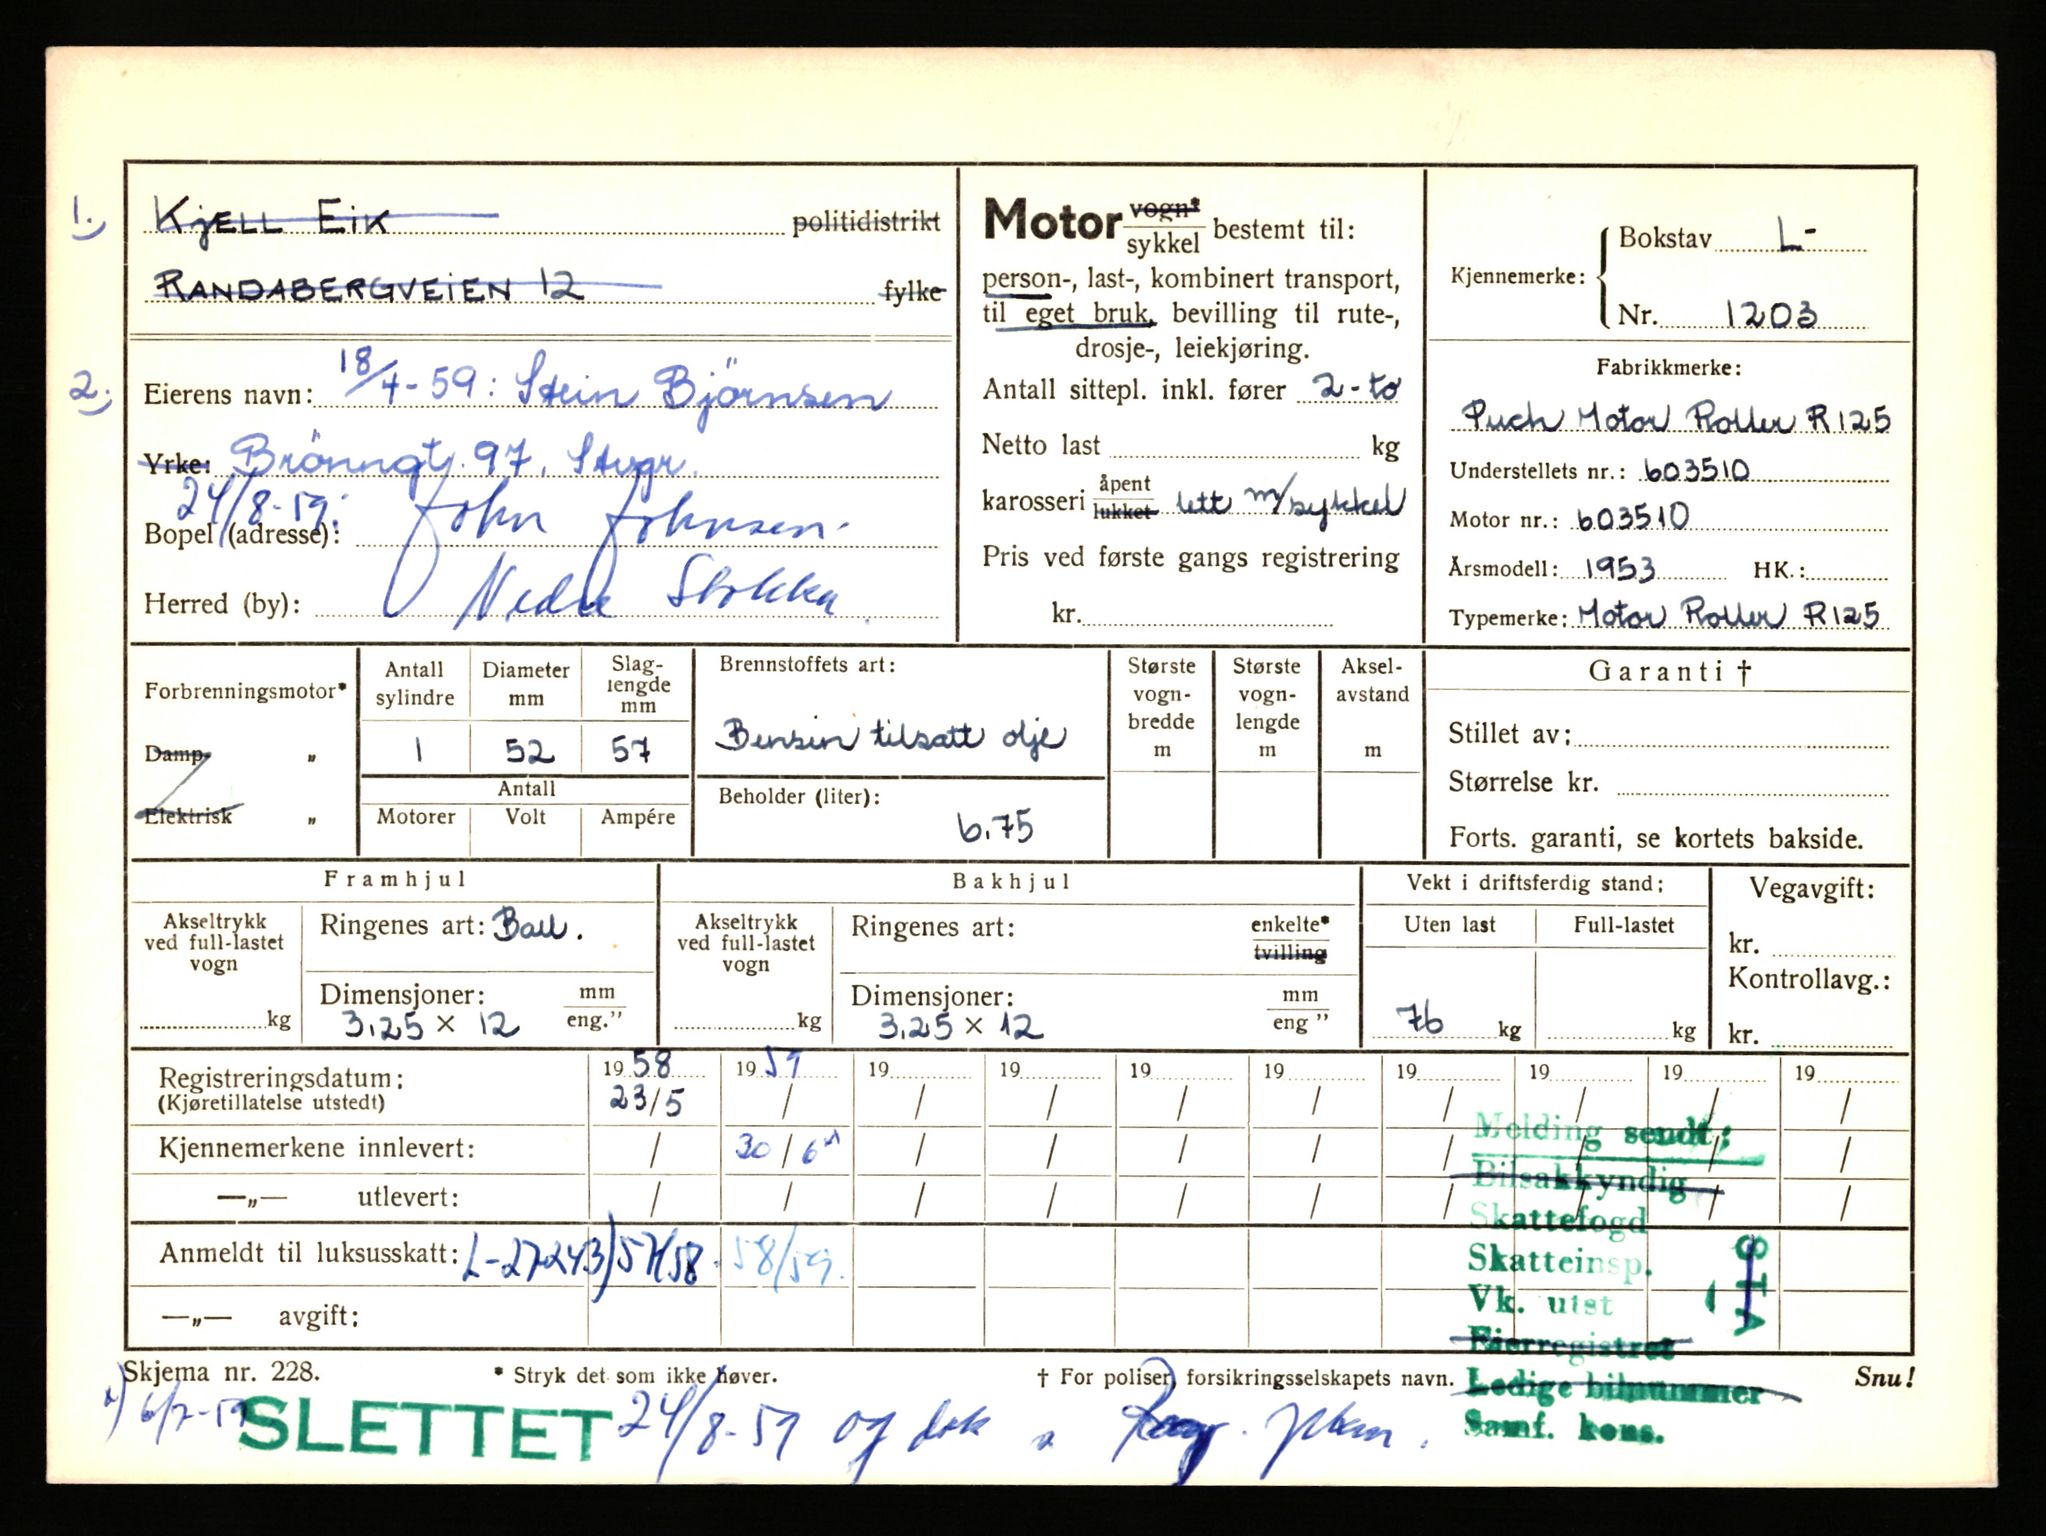 1. Kjell Eik politidistrikt
Randabergveien 12 fylke
2. Eierens navn: 18/4-59: Stein Björnsen
Yrke: Brönngt. 97, Stvgr.
24/8-59: John Johnsen
Bopel (adresse):
Herred (by): Nedre Stokka
Motor vogn* / sykkel bestemt til:
person-, last-, kombinert transport,
til eget bruk, bevilling til rute-,
drosje-, leiekjøring.
Antall sittepl. inkl. fører 2 - to
Netto last kg
karosseri åpent / lukket lett m/sykkel
Pris ved første gangs registrering
kr.
Kjennemerke: Bokstav L-
Nr. 1203
Fabrikkmerke:
Puch Motor Roller R 125
Understellets nr.: 603510
Motor nr.: 603510
Årsmodell: 1953 HK.:
Typemerke: Motor Roller R 125
Forbrenningsmotor*
Damp „
Elektrisk „
Antall sylindre 1
Diameter mm 52
Slaglengde mm 57
Antall
Motorer Volt Ampére
Brennstoffets art:
Bensin tilsatt olje
Beholder (liter):
6.75
Største vognbredde m
Største vognlengde m
Akselavstand m
Garanti †
Stillet av:
Størrelse kr.
Forts. garanti, se kortets bakside.
Framhjul
Akseltrykk ved full-lastet vogn kg
Ringenes art: Ball.
Dimensjoner: mm / eng.”
3.25 × 12
Bakhjul
Akseltrykk ved full-lastet vogn kg
Ringenes art: enkelte* / tvilling
Dimensjoner: mm / eng ”
3.25 × 12
Vekt i driftsferdig stand:
Uten last Full-lastet
76 kg kg
Vegavgift:
kr.
Kontrollavg.:
kr.
Registreringsdatum: 1958 1959 19 19 19 19 19 19 19 19
(Kjøretillatelse utstedt) 23/5 / / / / / / / / /
Kjennemerkene innlevert: / 30/6 / / / / / / / /
—„— utlevert: / / / / / / / / / /
Anmeldt til luksusskatt: L-27243) 57/58. 58/59.
—„— avgift:
Melding sendt:
Bilsakkyndig
Skattefogd
Skatteinsp.
Vk. utst
Eierregistret
Ledige bilnummer
Samf. kons.
Skjema nr. 228. * Stryk det som ikke høver. † For poliser, forsikringsselskapets navn. Snu!
6/7-59 SLETTET 24/8-59 og